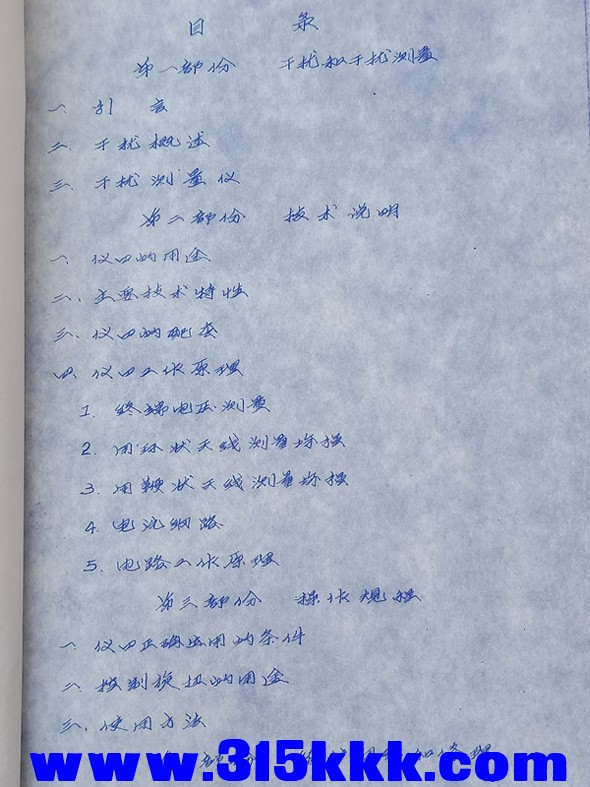 目 录
第一部份 干扰和干扰测量
一. 引 言
二. 干扰概述
三. 干扰测量仪
第二部份 技术说明
一. 仪四的用途
二. 主要技术特性
三. 仪四的配套
四. 仪四工作原理
1. 终端电压测量
2. 用环状天线测量场强
3. 用鞭状天线测量场强
4. 电流网路
5. 电路工作原理
第三部份 操作规程
一. 仪四正确运用的条件
二. 控制旋扭的用途
三. 使用方法
www.315kkk.com